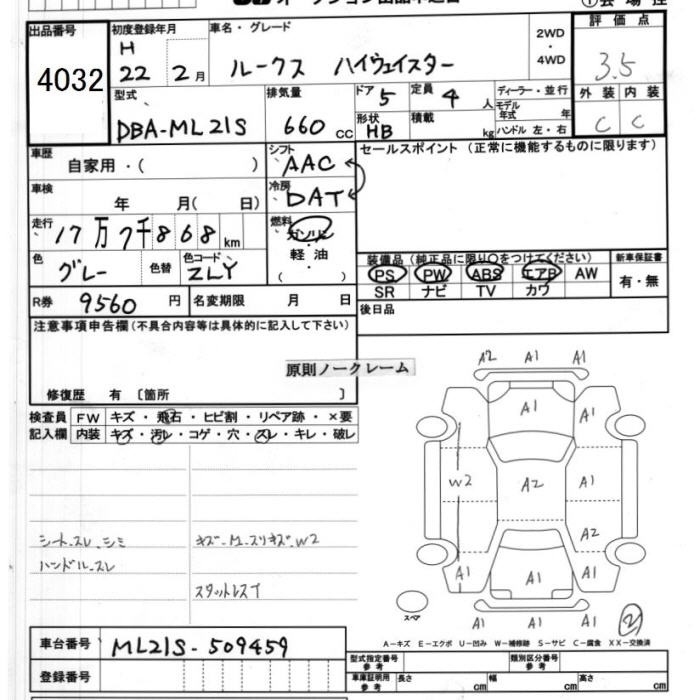 出品番号 4032
初度登録年月 H 22 2月
車名・グレード ルークス ハイウェイスター
2WD・4WD
評価点 3.5
型式 DBA-ML21S
排気量 660 cc
ドア 5
定員 4人
形状 HB
積載 kg
ディーラー・並行
モデル年式 年
ハンドル 左・右
外装 内装
C C
車歴 自家用・( )
シフト AAC
セールスポイント (正常に機能するものに限ります)
車検 年 月( 日)
冷房 DAT
走行 17万7千868km
燃料 ガソリン・軽油・( )
色 グレー 色替 色コード ZLY
装備品 (純正品に限り○をつけてください)
新車保証書
PS PW ABS エアB AW
有・無
SR ナビ TV カワ
R券 9560円 名変期限 月 日
後日品
注意事項申告欄(不具合内容等は具体的に記入して下さい)
原則ノークレーム
修復歴 有 〔箇所 〕
検査員記入欄
FW キズ・飛石・ヒビ割・リペア跡・×要
内装 キズ・汚レ・コゲ・穴・スレ・キレ・破レ
A2 A1 A1
A1
W2 A2 A1
A2
A1 A1 A1
A1 A1 A1
シートスレ、シミ
ハンドルスレ
スタットレスT
スペア
2
A-キズ E-エクボ U-凹み W-補修跡 S-サビ C-腐食 XX-交換済
車台番号 ML21S-509459
型式指定番号 参考
類別区分番号 参考
登録番号
車庫証明用 参考 長さ cm 幅 cm 高さ cm